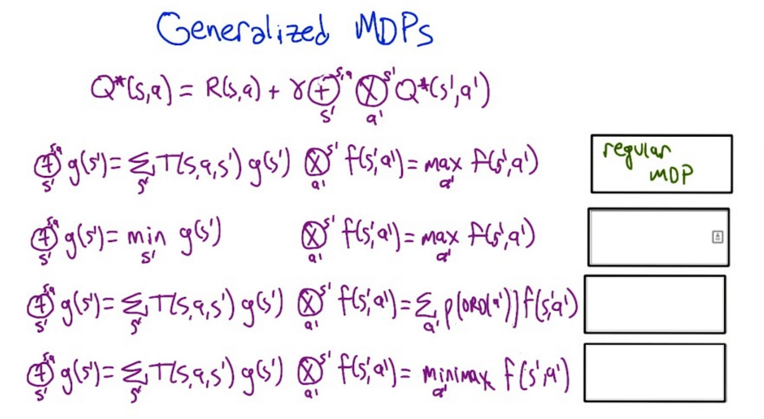 Generalized MDPs
Q*(s,a) = R(s,a) + γ ⊕_{s'}^{s,a} ⊗_{a'}^{s'} Q*(s',a')
⊕_{s'}^{s,a} g(s') = Σ_{s'} T(s,a,s') g(s') ⊗_{a'}^{s'} f(s',a') = max_{a'} f(s',a') regular MDP
⊕_{s'}^{s,a} g(s') = min_{s'} g(s') ⊗_{a'}^{s'} f(s',a') = max_{a'} f(s',a')
⊕_{s'}^{s,a} g(s') = Σ_{s'} T(s,a,s') g(s') ⊗_{a'}^{s'} f(s',a') = Σ_{a'} p(ORD(a')) f(s',a')
⊕_{s'}^{s,a} g(s') = Σ_{s'} T(s,a,s') g(s') ⊗_{a'}^{s'} f(s',a') = minimax_{a'} f(s',a')